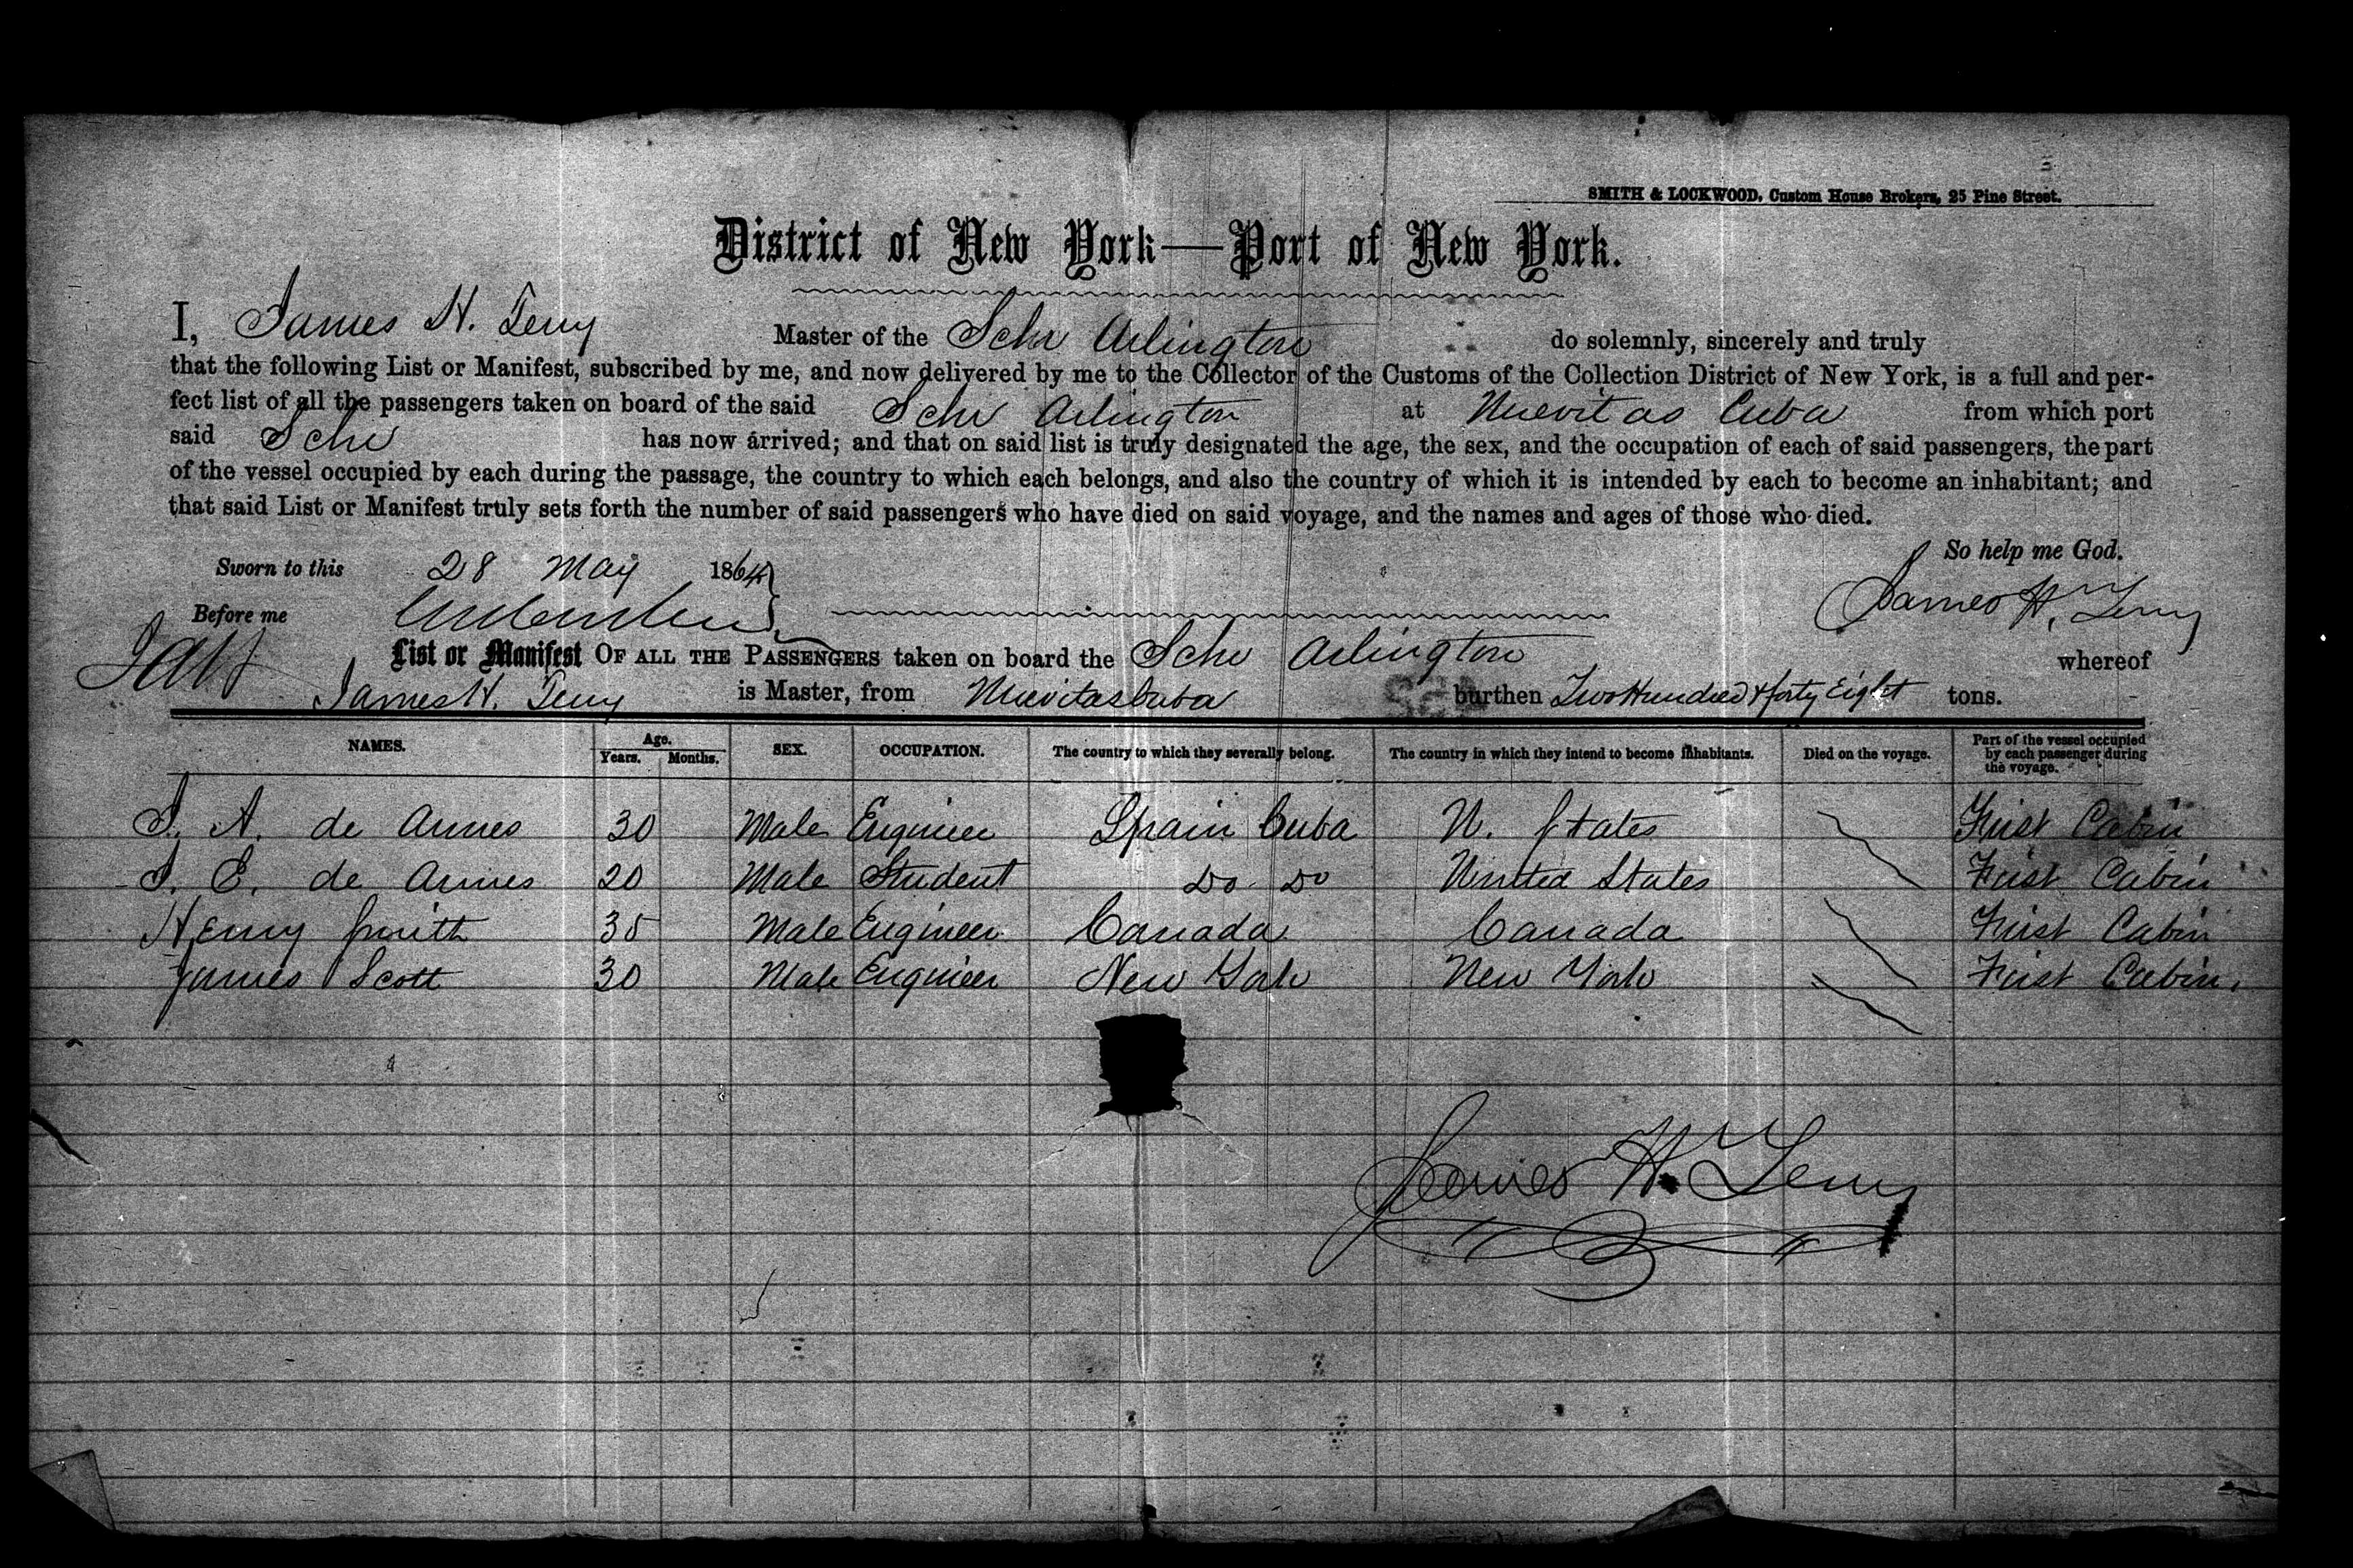 SMITH & LOCKWOOD, Custom House Brokers, 25 Pine Street.
District of New York—Port of New York.
I, James H. Terry Master of the Schr Arlington do solemnly, sincerely and truly
that the following List or Manifest, subscribed by me, and now delivered by me to the Collector of the Customs of the Collection District of New York, is a full and per-
fect list of all the passengers taken on board of the said Schr Arlington at Nuevitas Cuba from which port
said Schr has now arrived; and that on said list is truly designated the age, the sex, and the occupation of each of said passengers, the part
of the vessel occupied by each during the passage, the country to which each belongs, and also the country of which it is intended by each to become an inhabitant; and
that said List or Manifest truly sets forth the number of said passengers who have died on said voyage, and the names and ages of those who died.
So help me God.
Sworn to this 28 May 1864
James H. Terry
Before me
List or Manifest OF ALL THE PASSENGERS taken on board the Schr Arlington whereof
James H. Terry is Master, from Nuevitas Cuba burthen Two Hundred & forty Eight tons.
NAMES. Age. Years. Months. SEX. OCCUPATION. The country to which they severally belong. The country in which they intend to become inhabitants. Died on the voyage. Part of the vessel occupied by each passenger during the voyage.
J. A. de Armes 30 Male Engineer Spain Cuba U. States First Cabin
J. E. de Armes 20 Male Student Do Do United States First Cabin
Henry Smith 35 Male Engineer Canada Canada First Cabin
James Scott 30 Male Engineer New York New York First Cabin.
James H. Terry